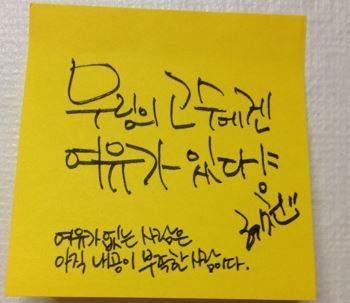 무림의 고수에겐
여유가 있다!
여유가 없는 사람은
아직 내공이 부족한 사람이다.